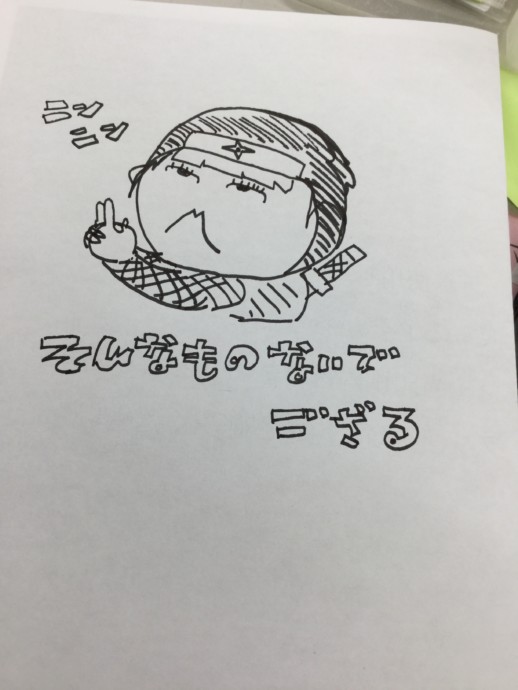 ニン
ニン
そんなもの ないで
ござる